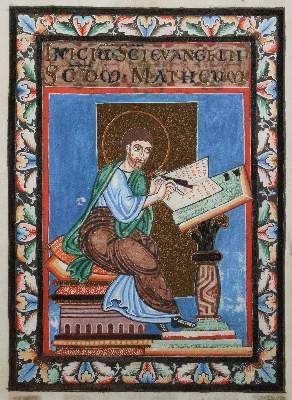 INICIUSCIEVANGELII
SCDM·MATHEUM